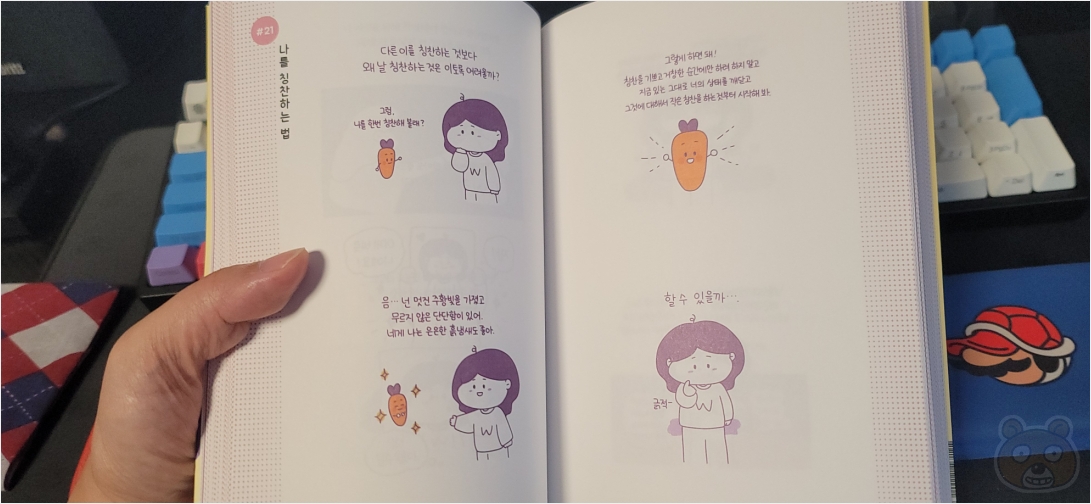 #21
나를 칭찬하는 법
다른 이를 칭찬하는 것보다
왜 날 칭찬하는 것은 이토록 어려울까?
그럼,
나를 한번 칭찬해 볼래?
W
음… 넌 멋진 주황빛을 가졌고
무르지 않은 단단함이 있어.
네게 나는 은은한 흙냄새도 좋아.
W
그렇게 하면 돼!
칭찬을 기쁘고 거창한 순간에만 하려 하지 말고
지금 있는 그대로 너의 상태를 깨닫고
그것에 대해서 작은 칭찬을 하는 것부터 시작해 봐.
할 수 있을까…
긁적-
W